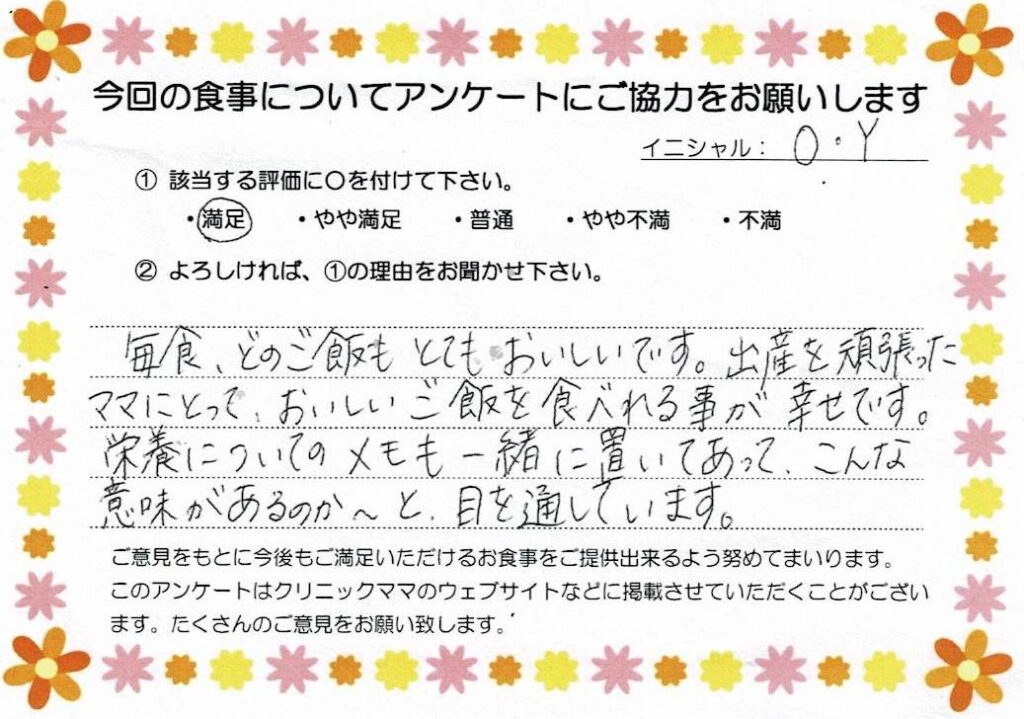 今回の食事についてアンケートにご協力をお願いします
イニシャル： O・Y
① 該当する評価に〇を付けて下さい。
・満足 ・やや満足 ・普通 ・やや不満 ・不満
② よろしければ、①の理由をお聞かせ下さい。
毎食、どのご飯も とても おいしいです。出産を頑張った
ママにとって、おいしいご飯を食べれる事が幸せです。
栄養についてのメモも一緒に置いてあって、こんな
意味があるのか〜と、目を通しています。
ご意見をもとに今後もご満足いただけるお食事をご提供出来るよう努めてまいります。
このアンケートはクリニックママのウェブサイトなどに掲載させていただくことがござい
ます。たくさんのご意見をお願い致します。